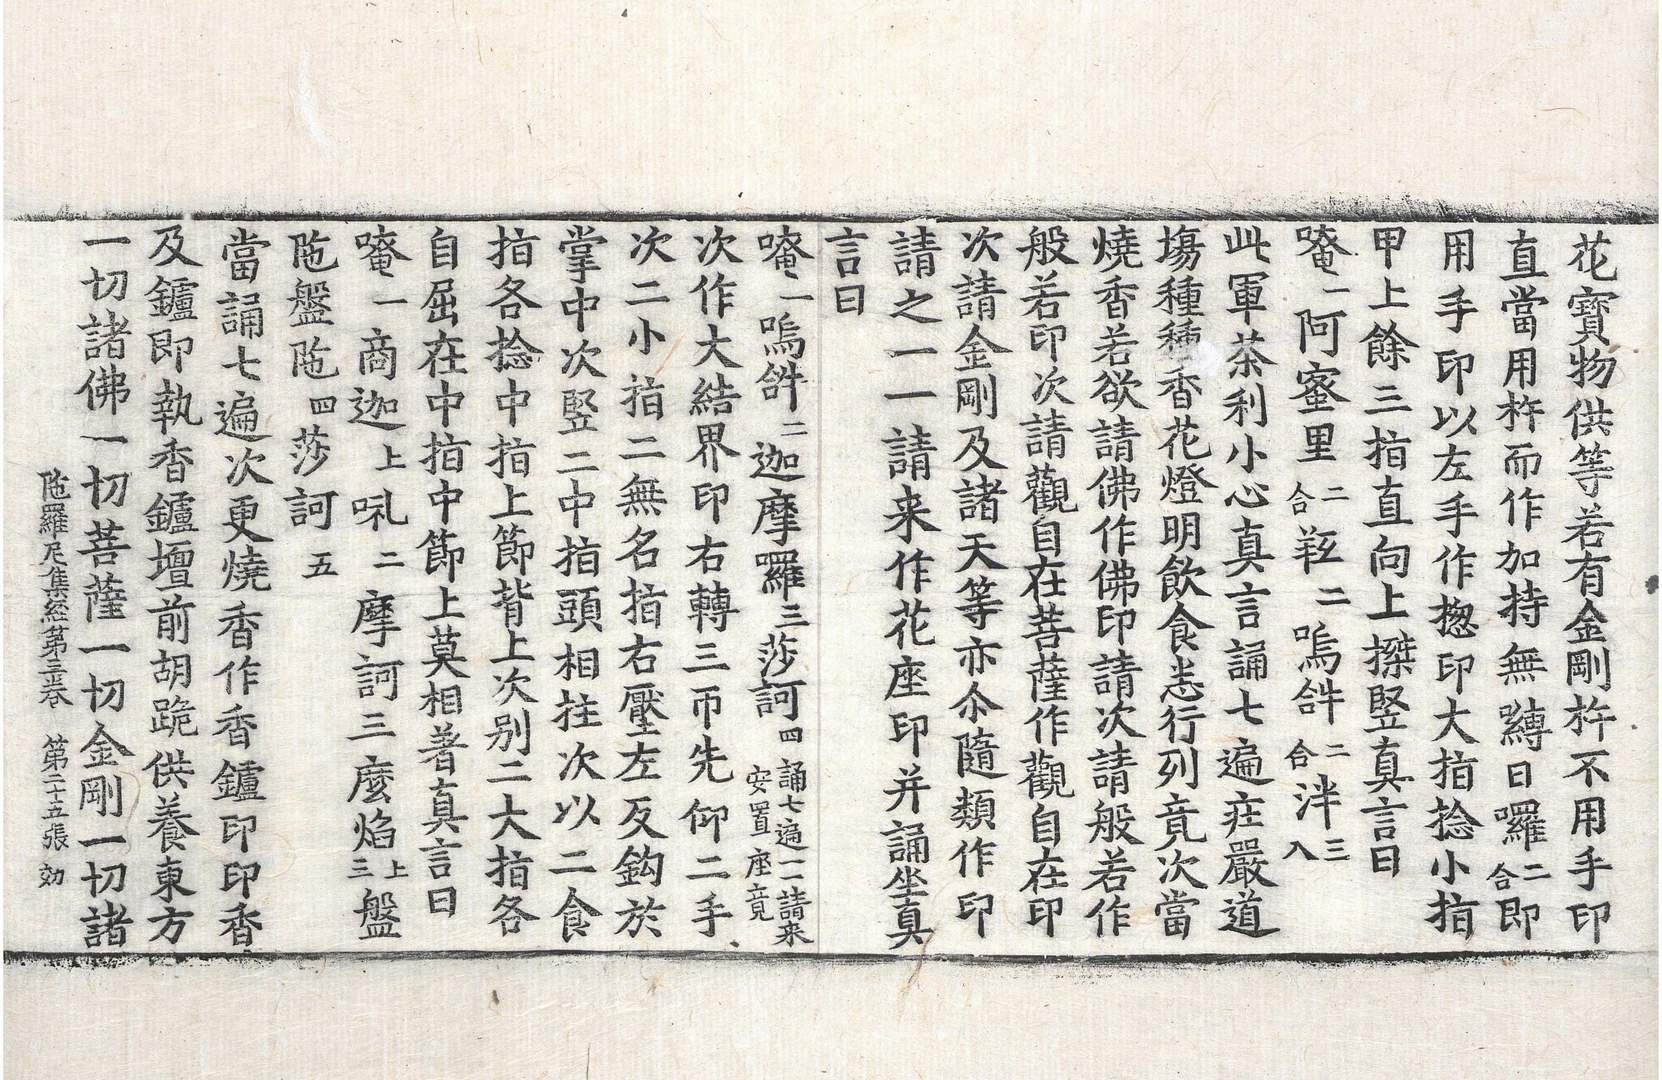 花寶物供等若有金剛杵不用手印
直當用杵而作加持無縛日囉二合即
用手印以左手作揔印大指捻小指
甲上餘三指直向上搩竪真言曰
唵一阿蜜里二合𤚥二嗚𤙖二合泮三入
此軍茶利小心真言誦七遍庄嚴道
場種種香花燈明飲食恙行列竟次當
燒香若欲請佛作佛印請次請般若作
般若印次請觀自在菩薩作觀自在印
次請金剛及諸天等亦尒隨類作印
請之一一請来作花座印并誦坐真
言曰
唵一嗚𤙖二迦摩囉三莎訶四誦七遍一一請来安置座竟
次作大結界印右轉三帀先仰二手
次二小指二無名指右壓左反鈎於
掌中次竪二中指頭相拄次以二食
指各捻中指上節背上次别二大指各
自屈在中指中節上莫相著真言曰
唵一商迦上吼二摩訶三麼焰上三盤
陁盤陁四莎訶五
當誦七遍次更燒香作香鑪印印香
及鑪即執香鑪壇前胡跪供養東方
一切諸佛一切菩薩一切金剛一切諸
陁羅尼集経第三卷 第二十五張 効